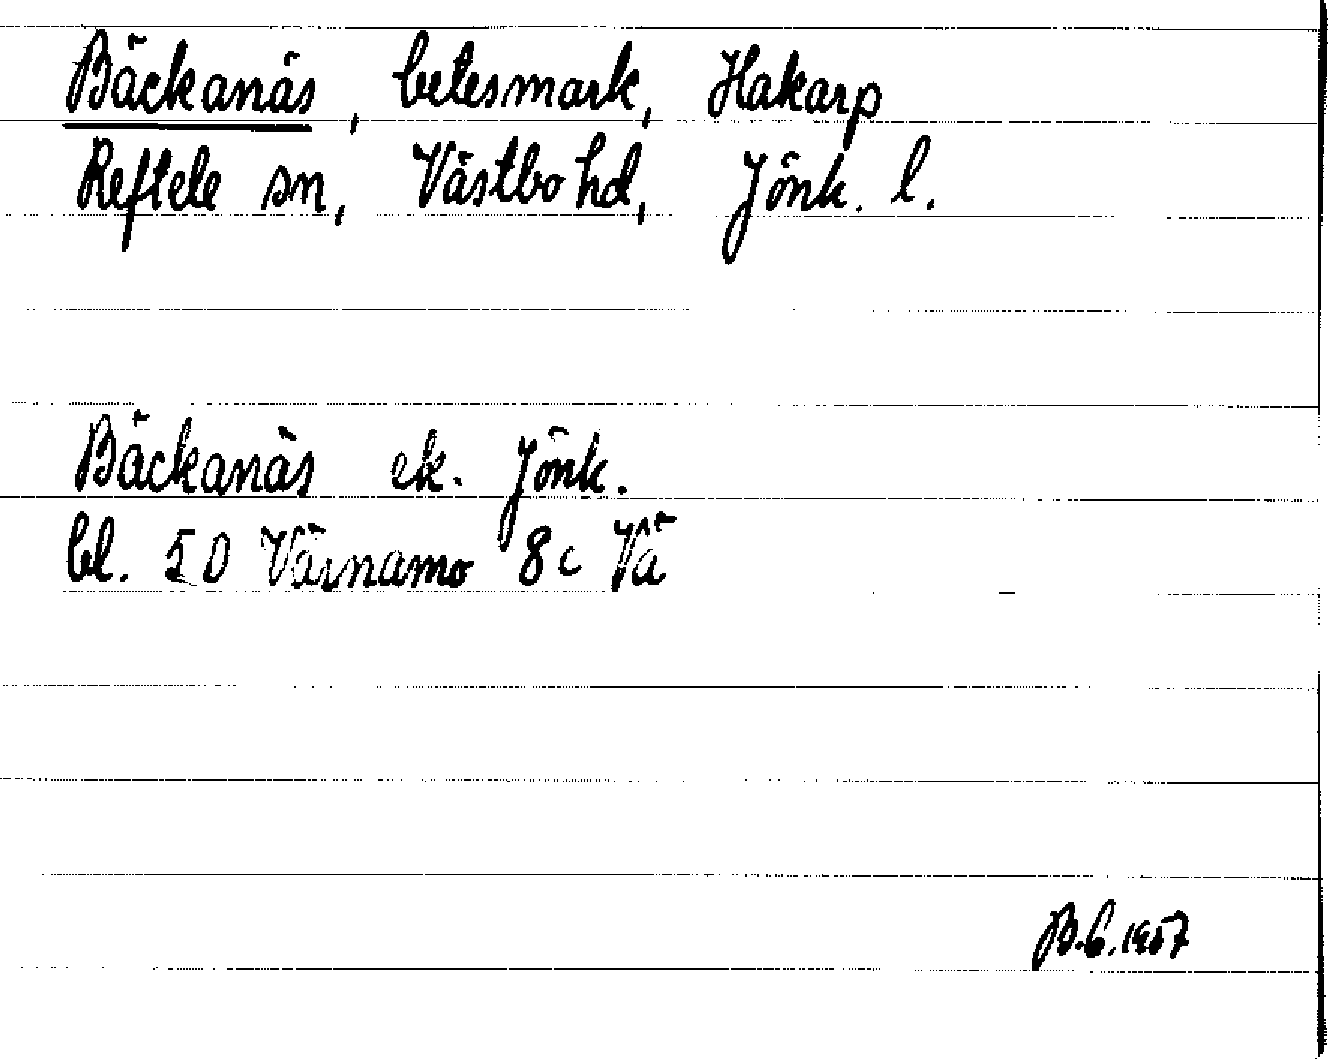 Bäckanäs, betesmark, Hakarp
Reftele sn, Västbo hd, Jönk. l.
Bäckanäs ek. Jönk.
bl. 50 Värnamo 8c Vä
B.G. 1957